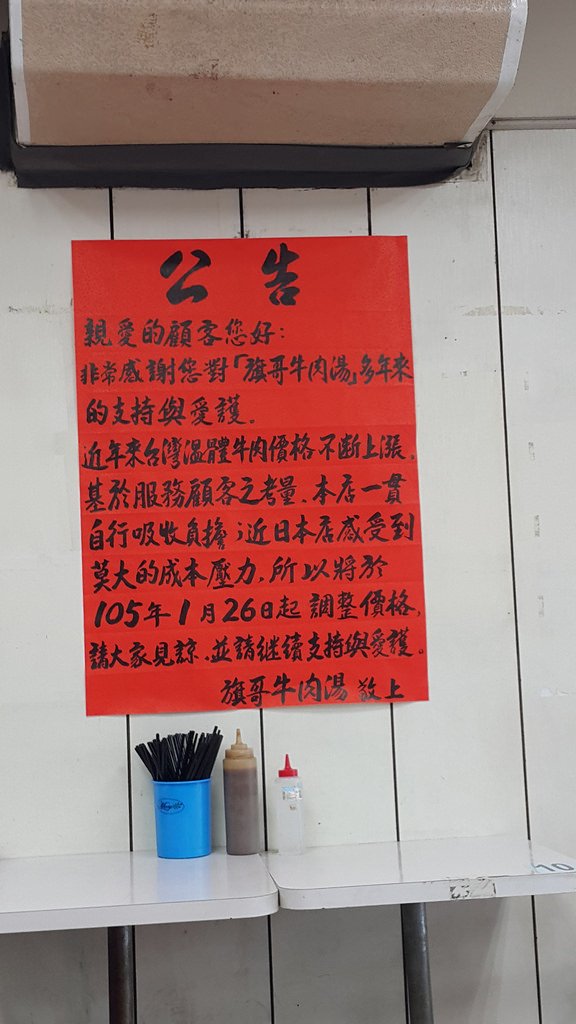 公告
親愛的顧客您好:
非常感謝您對「旗哥牛肉湯」多年來
的支持與愛護。
近年來台灣溫體牛肉價格不斷上漲。
基於服務顧客之考量,本店一貫
自行吸收負擔;近日本店感受到
莫大的成本壓力,所以將於
105年1月26日起調整價格,
請大家見諒、並請繼續支持與愛護。
旗哥牛肉湯 敬上
10